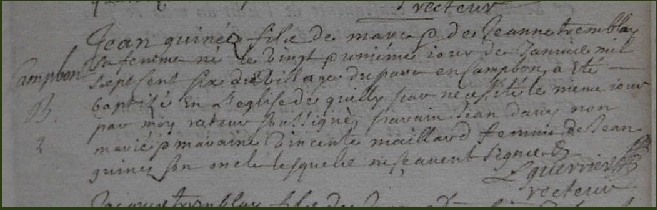 recteur
Jean guiné fils de marc & de Jeanne tremblay
sa femme né le vingt & unième iour de Janvier mil
Campbon sept cent six du village du parc en Campbon, a été
B baptizé en l'eglise de quilly par necessité le meme iour
par moy recteur soussigné, parain Jean davy non
2 marié & maraine vincente maillard femme de Jean
guiné son oncle lesquels ne scavent signer &
L guerrier
recteur
Jacques tremblay fils de